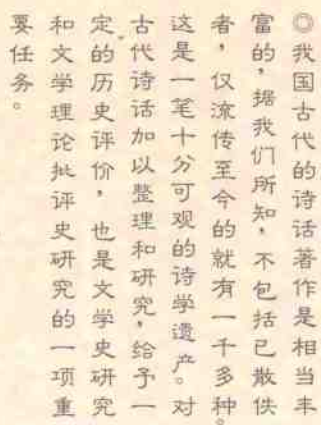 ◎我国古代的诗话著作是相当丰
富的，据我们所知，不包括已散佚
者，仅流传至今的就有一千多种。
这是一笔十分可观的诗学遗产。对
古代诗话加以整理和研究，给予一
定的历史评价，也是文学史研究
和文学理论批评史研究的一项重
要任务。